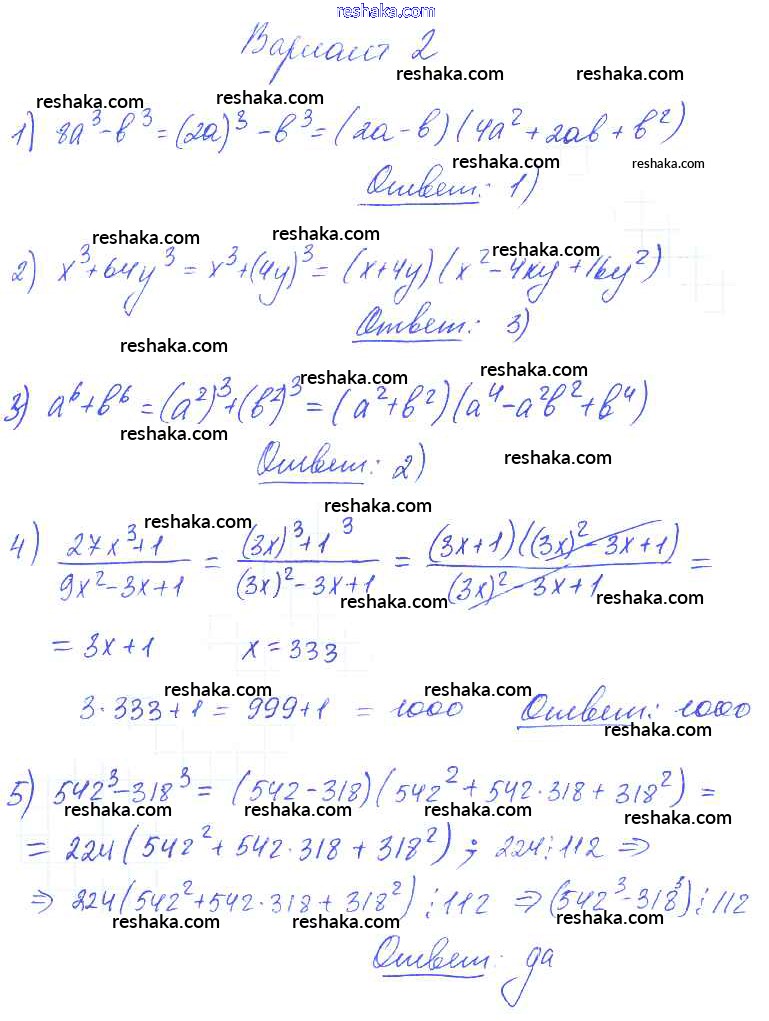 reshaka.com
Вариант 2
reshaka.com reshaka.com
reshaka.com reshaka.com
1) 8a³-b³=(2a)³-b³=(2a-b)(4a²+2ab+b²)
reshaka.com reshaka.com
Ответ: 1)
reshaka.com reshaka.com reshaka.com
2) x³+64y³=x³+(4y)³=(x+4y)(x²-4xy+16y²)
Ответ: 3)
reshaka.com
reshaka.com reshaka.com
3) a⁶+b⁶=(a²)³+(b²)³=(a²+b²)(a⁴-a²b²+b⁴)
reshaka.com
Ответ: 2) reshaka.com
reshaka.com
reshaka.com reshaka.com
4) (27x³+1)/(9x²-3x+1) = ((3x)³+1³)/((3x)²-3x+1) = ((3x+1)((3x)²-3x+1))/((3x)²-3x+1) =
reshaka.com reshaka.com
= 3x+1 x=333
reshaka.com reshaka.com
3·333+1= 999+1 =1000 Ответ: 1000
reshaka.com
reshaka.com reshaka.com
5) 542³-318³ = (542-318)(542²+542·318+318²) =
reshaka.com reshaka.com
= 224(542²+542·318+318²); 224⋮112 ⇒
reshaka.com reshaka.com
⇒ 224(542²+542·318+318²)⋮112 ⇒(542³-318³)⋮112
reshaka.com reshaka.com reshaka.com
Ответ: да